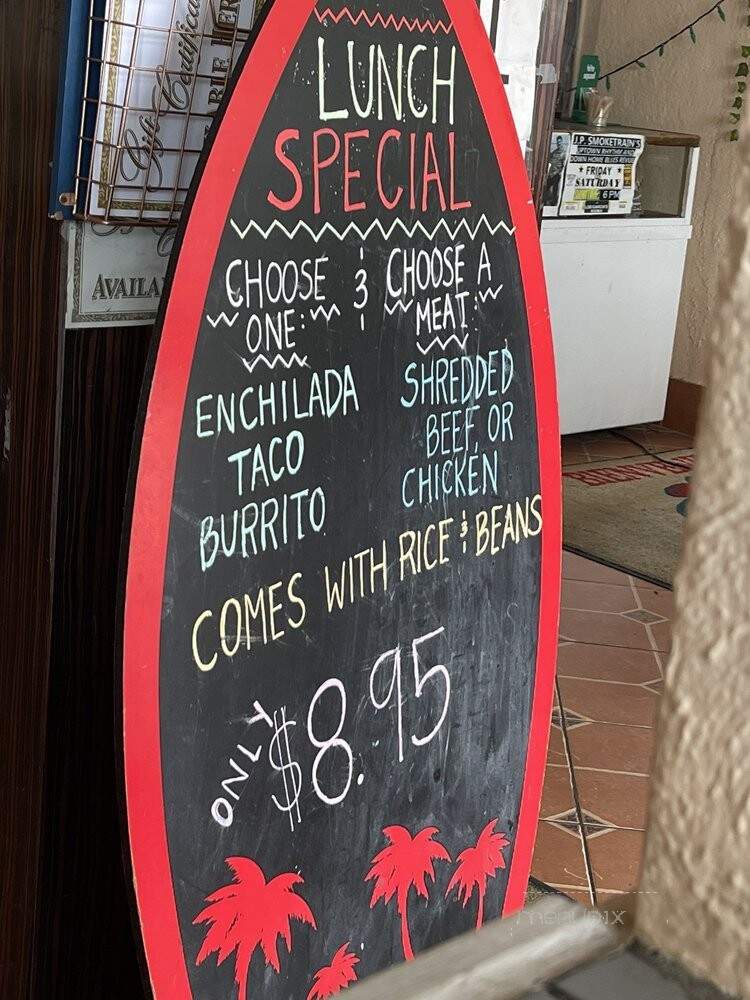 LUNCH
SPECIAL
CHOOSE
ONE:
&
CHOOSE A
MEAT:
ENCHILADA
TACO
BURRITO
SHREDDED
BEEF, OR
CHICKEN
COMES WITH RICE & BEANS
ONLY
$8.95
Gift Certificat
AVAILA
J.P. SMOKETRAIN'S
UPTOWN RHYTHM AND
DOWN HOME BLUES REVUE
★ FRIDAY ★
SATURDAY
6 PM
menupix